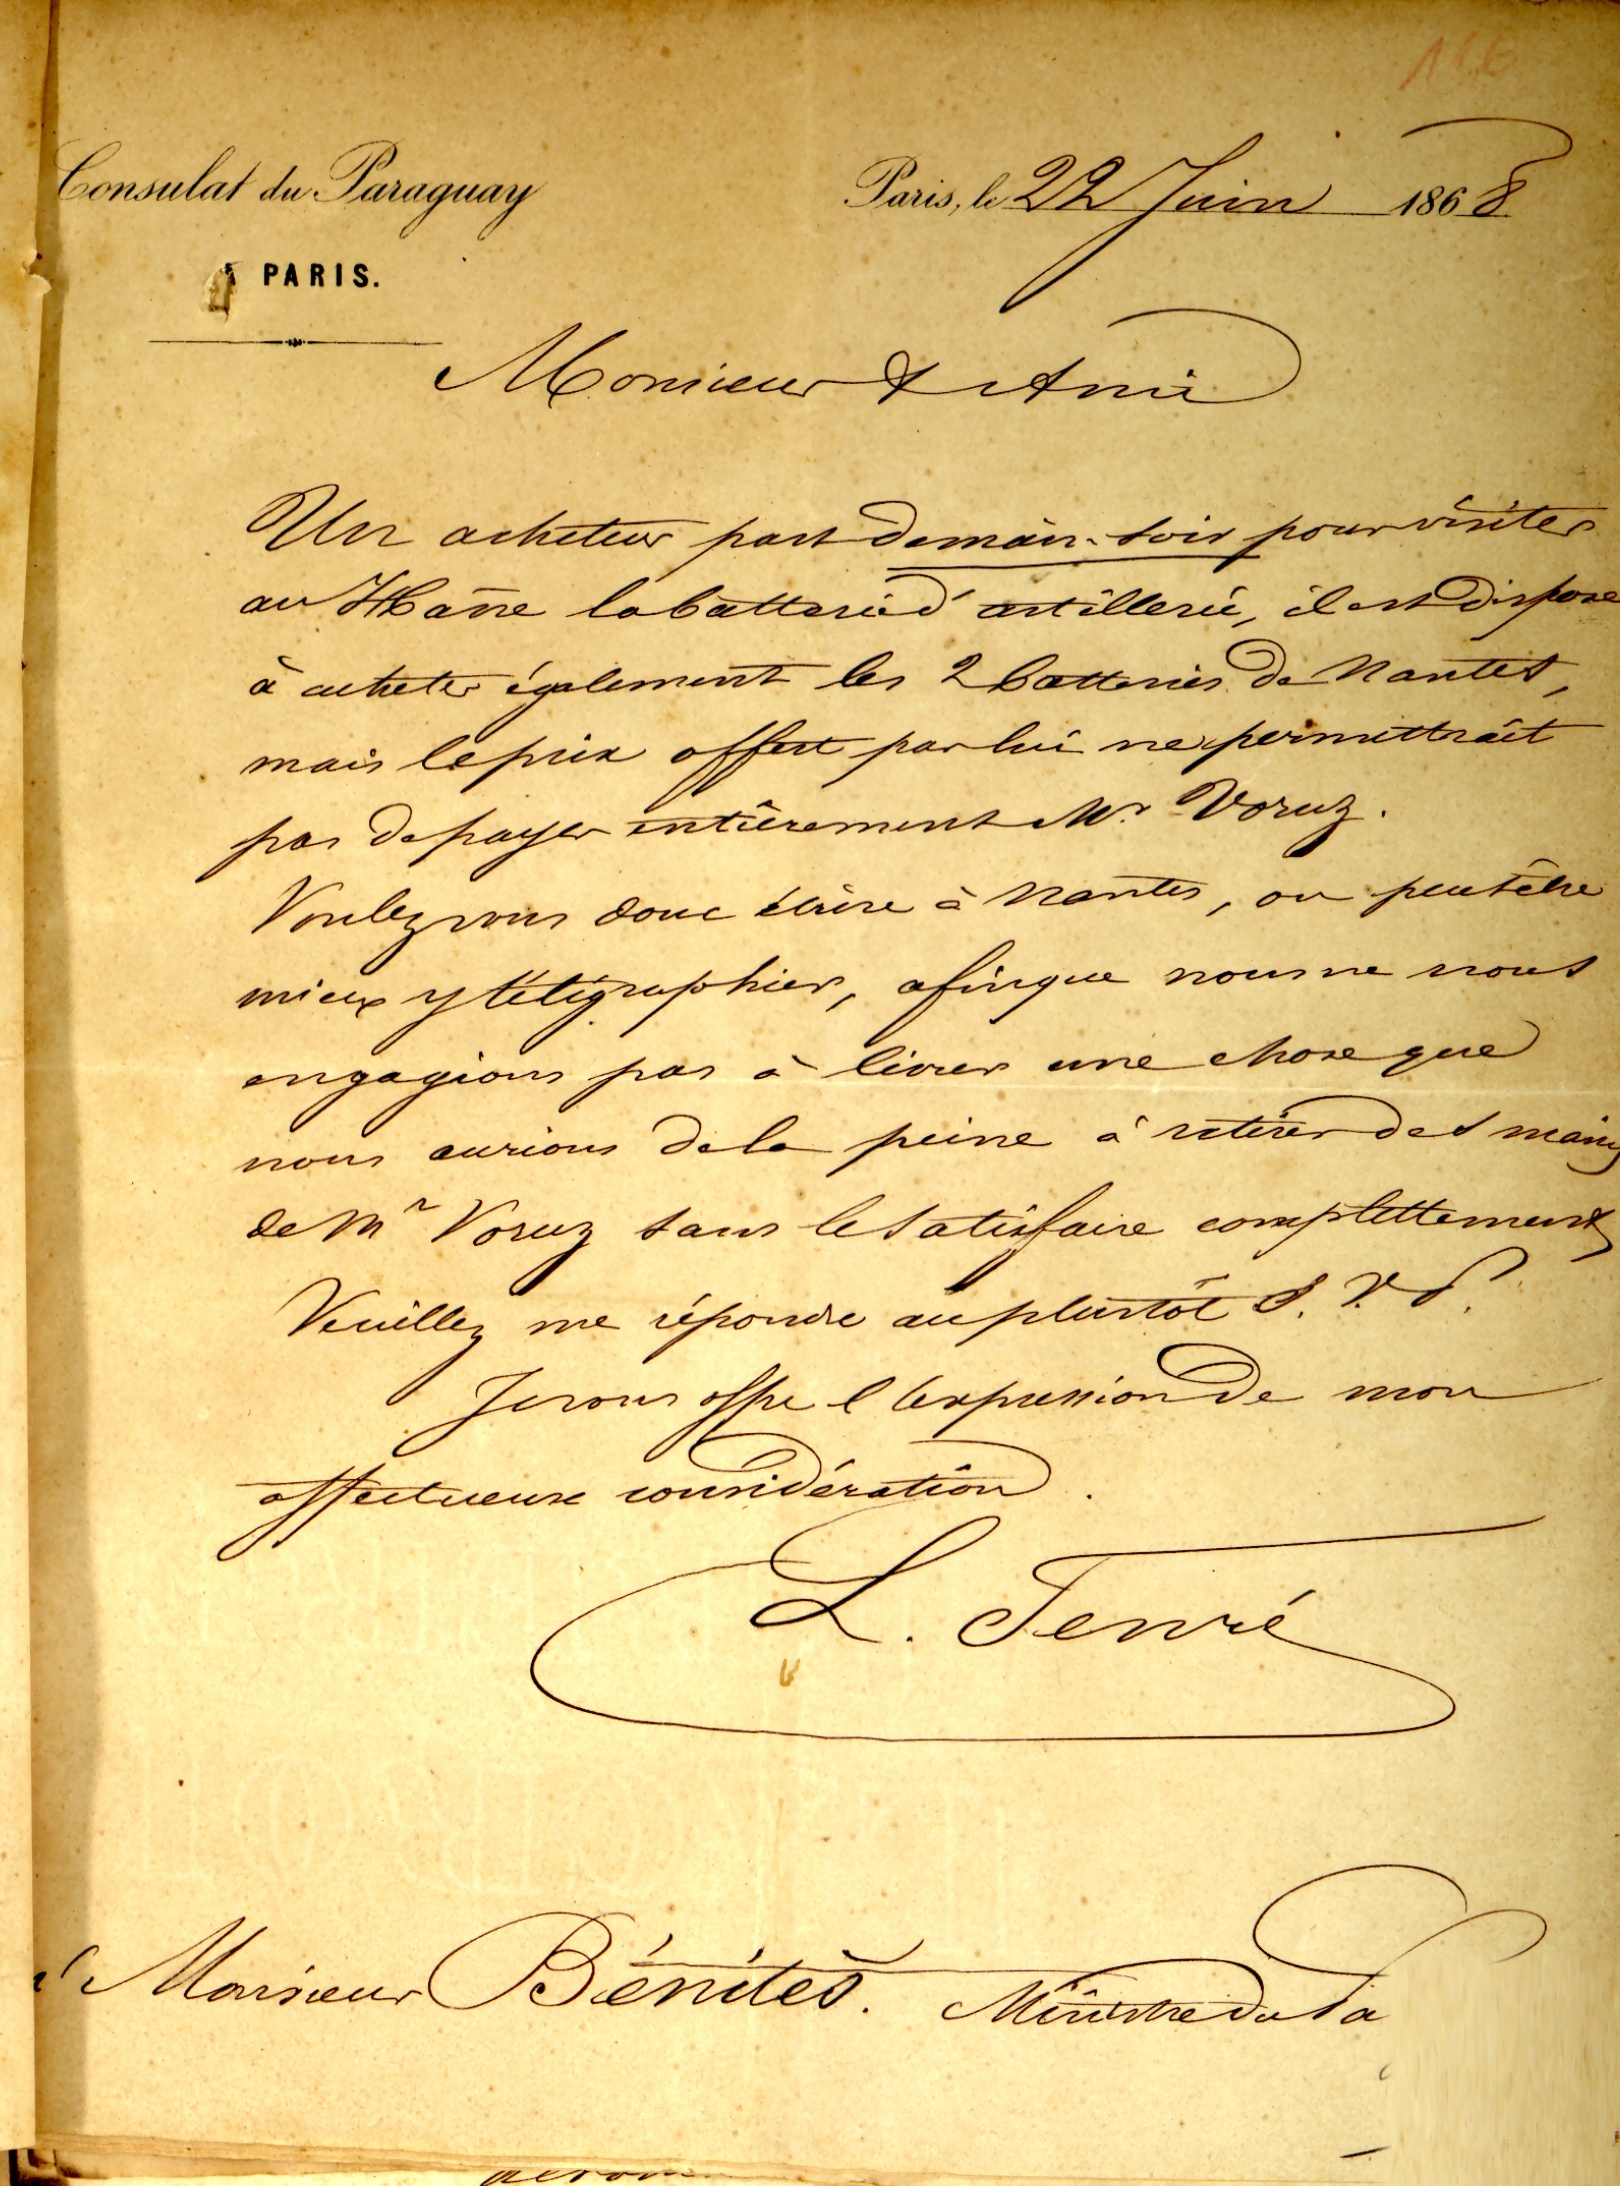 116
Consulat du Paraguay
PARIS.
Paris, le 22 Juin 1868
Monsieur & Ami
Un acheteur part demain soir pour visiter
au Hâvre la batterie d'artillerie, il est disposé
à acheter également les 2 batteries de Nantes,
mais le prix offert par lui ne permettrait
pas de payer entièrement Mr. Voruz.
Voulez vous donc écrire à Nantes, ou peut être
mieux y télégraphier, afin que nous ne nous
engagions pas à livrer une chose que
nous aurions de la peine à retirer des mains
de Mr Voruz sans le satisfaire complettement
Veuillez me répondre au plustôt S. V. P.
Je vous offre l'expression de mon
affectueuse considération.
L. Tenré
à Monsieur Bénitès. Ministre du Pa